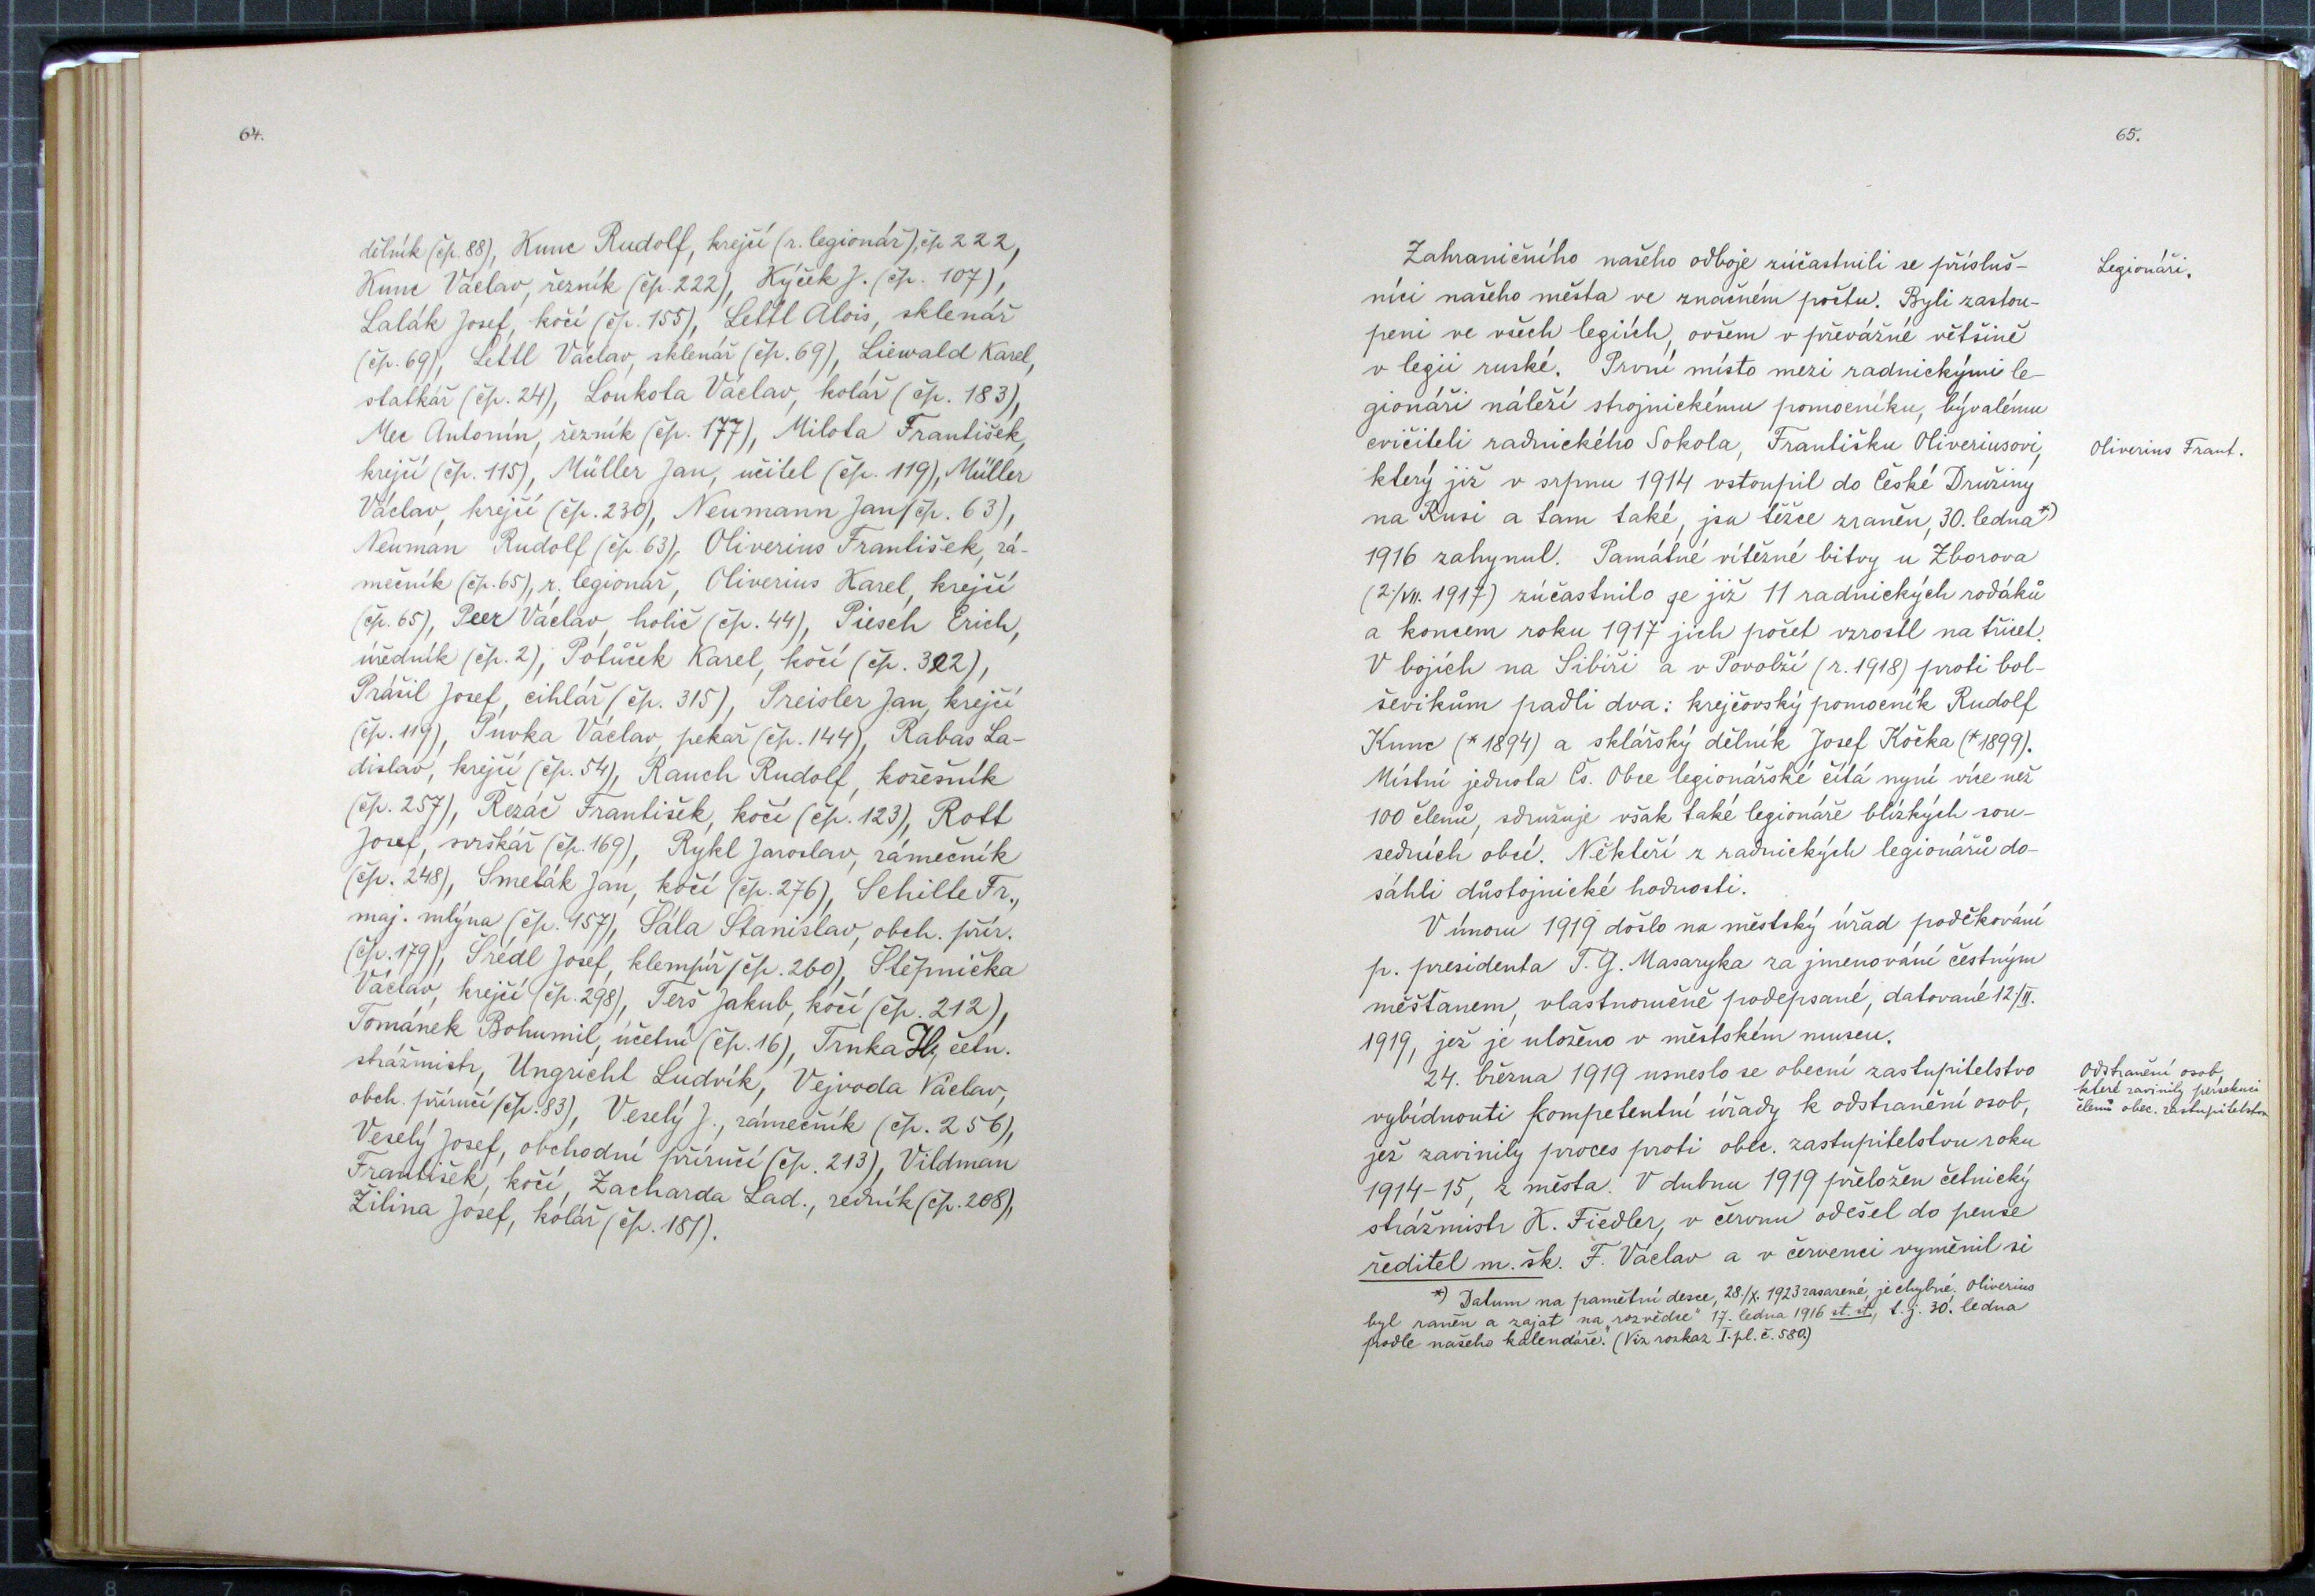 64.
dělník (čp. 88), Kunc Rudolf, krejčí (r. legionář), čp 222,
Kunc Václav, řezník (čp. 222), Kýček J. (čp. 107),
Lalák Josef, kočí (čp. 155), Lettl Alois, sklenář
(čp. 69), Lettl Václav, sklenář (čp. 69), Liewald Karel,
statkář (čp. 24), Loukota Václav, kolář (čp. 183),
Mec Antonín, řezník (čp. 177), Milota František,
krejčí (čp. 115), Müller Jan, učitel (čp. 119), Müller
Václav, krejčí (čp. 230), Neumann Jan (čp. 63),
Neuman Rudolf (čp. 63), Oliverius František, zá-
mečník (čp. 65), r. legionář, Oliverius Karel, krejčí
(čp. 65), Peer Václav, holič (čp. 44), Piesch Erich,
úředník (čp. 2), Potůček Karel, kočí (čp. 322),
Prášil Josef, cihlář (čp. 315), Preisler Jan, krejčí
(čp. 119), Puvka Václav, pekař (čp. 144), Rabas La-
dislav, krejčí (čp. 54), Rauch Rudolf, kožešník
(čp. 257), Řezáč František, kočí (čp. 123), Rott
Josef, svrškář (čp. 169), Rykl Jaroslav, zámečník
(čp. 248), Smeták Jan, kočí (čp. 276), Schilte Fr.,
maj. mlýna (čp. 157), Šála Stanislav, obch. přír.
(čp. 179), Šrédl Josef, klempíř (čp. 260), Štěpnička
Václav, krejčí (čp. 298), Terš Jakub, kočí (čp. 212),
Tománek Bohumil, účetní (čp. 16), Trnka Hy četn.
strážmistr, Ungricht Ludvík, Vejvoda Václav,
obch. příručí (čp. 83), Veselý J., zámečník (čp. 256),
Veselý Josef, obchodní příručí (čp. 213), Vildman
František, kočí, Zacharda Lad., zedník (čp. 208),
Žilina Josef, kolář (čp. 181).
65.
Zahraničního našeho odboje zúčastnili se přísluš-
níci našeho města ve značném počtu. Byli zastou-
peni ve všech legiích, ovšem v převážné většině
v legii ruské. První místo mezi radnickými le-
gionáři náleží strojnickému pomocníku, bývalému
cvičiteli radnického Sokola, Františku Oliveriusovi,
který již v srpnu 1914 vstoupil do České Družiny
na Rusi a tam také, jsa těžce zraněn, 30. ledna *)
1916 zahynul. Památné vítězné bitvy u Zborova
(2/VII. 1917) zúčastnilo se již 11 radnických rodáků
a koncem roku 1917 jich počet vzrostl na třicet.
V bojích na Sibiři a v Povolží (r. 1918) proti bol-
ševikům padli dva: krejčovský pomocník Rudolf
Kunc (* 1894) a sklářský dělník Josef Kočka (* 1899).
Místní jednota Čs. Obce legionářské čítá nyní více než
100 členů, sdružuje však také legionáře blízkých sou-
sedních obcí. Někteří z radnických legionářů do-
sáhli důstojnické hodnosti.
V únoru 1919 došlo na městský úřad poděkování
p. presidenta T. G. Masaryka za jmenování čestným
měšťanem, vlastnoručně podepsané, datované 12/II.
1919, jež je uloženo v městském museu.
24. března 1919 usneslo se obecní zastupitelstvo
vybídnouti kompetentní úřady k odstranění osob,
jež zavinily proces proti obec. zastupitelstvu roku
1914-15, z města. V dubnu 1919 přeložen četnický
strážmistr K. Fiedler, v červnu odešel do pense
ředitel m. šk. F. Václav a v červenci vyměnil si
*) Datum na pamětní desce, 28./X. 1923 zasazené, je chybné. Oliverius
byl raněn a zajat na „rozvědce" 17. ledna 1916 st. st., t. j. 30. ledna
podle našeho kalendáře. (Viz rozkaz I. pl. č. 580.)
Legionáři.
Oliverius Frant.
Odstranění osob,
které zavinily persekuci
členů obec. zastupitelstva